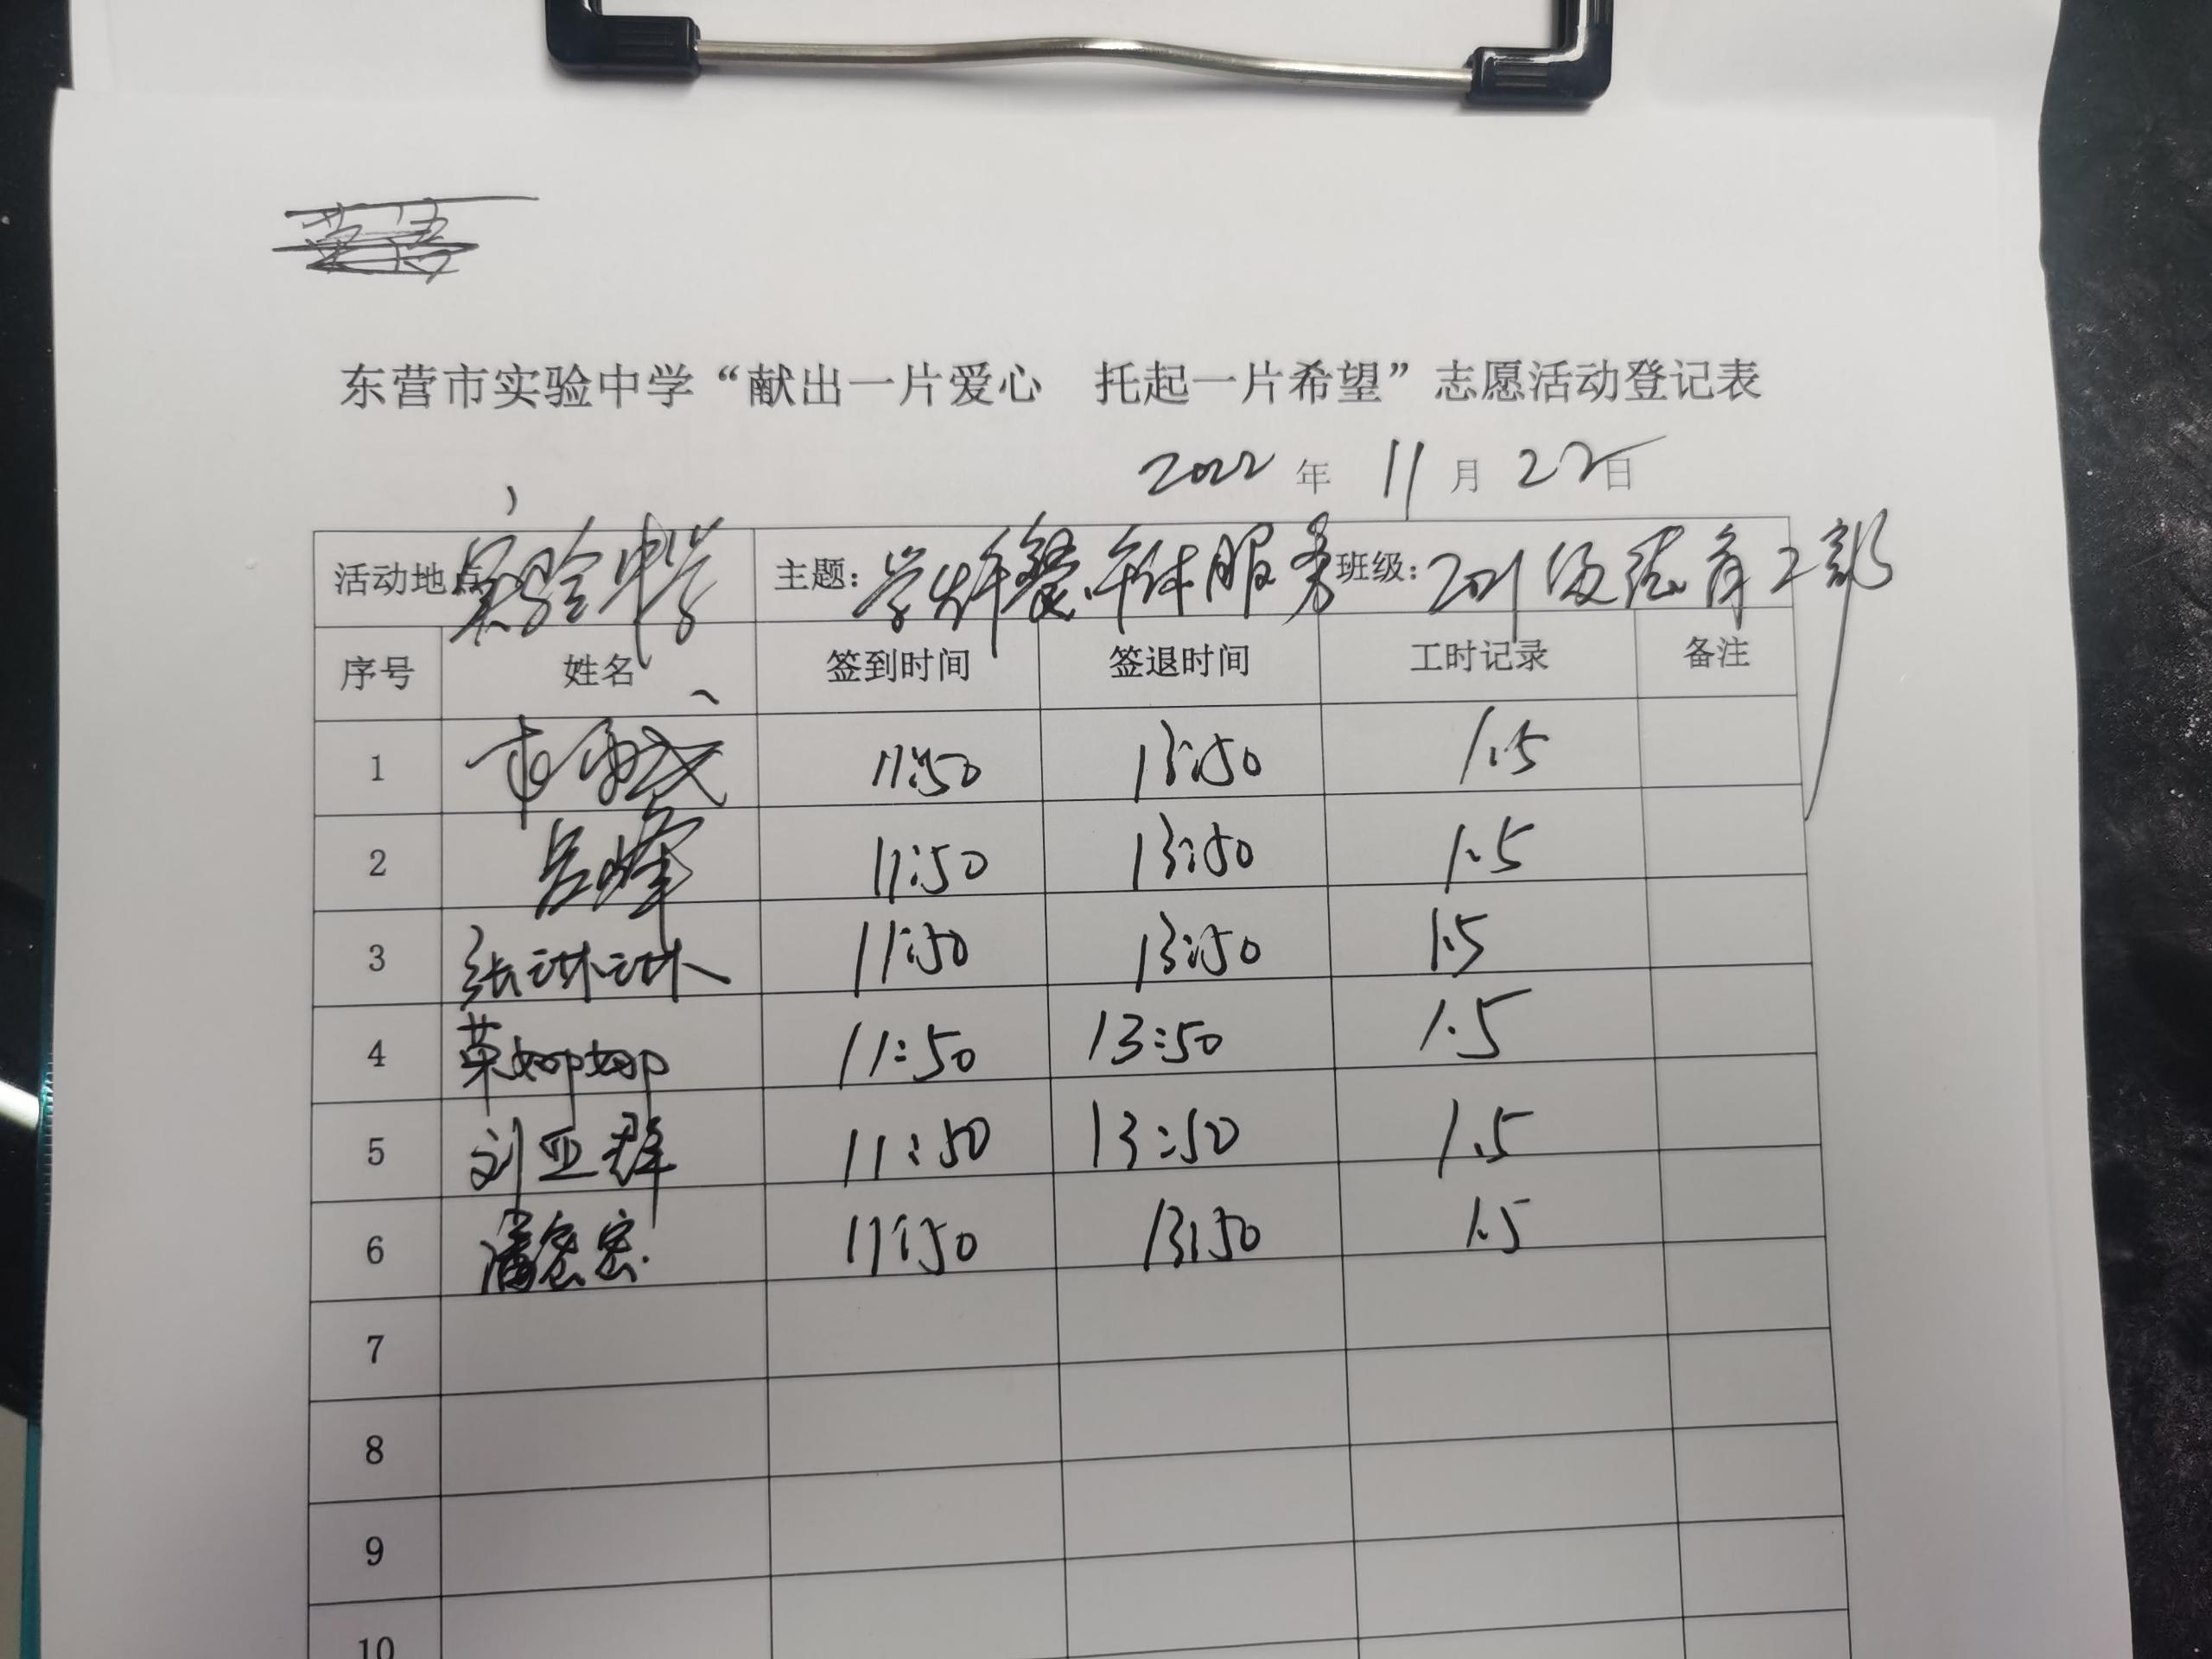 东营市实验中学“献出一片爱心 托起一片希望”志愿活动登记表
2022 年 11 月 22 日
活动地点 实验中学 主题：学生午餐午休服务 班级：2021级德育工部
序号 姓名 签到时间 签退时间 工时记录 备注
1 11:50 13:50 1.5
2 吕峰 11:50 13:50 1.5
3 张琳琳 11:50 13:50 1.5
4 荣娜娜 11:50 13:50 1.5
5 刘亚群 11:50 13:50 1.5
6 潘宏宏 11:50 13:50 1.5
7
8
9
10